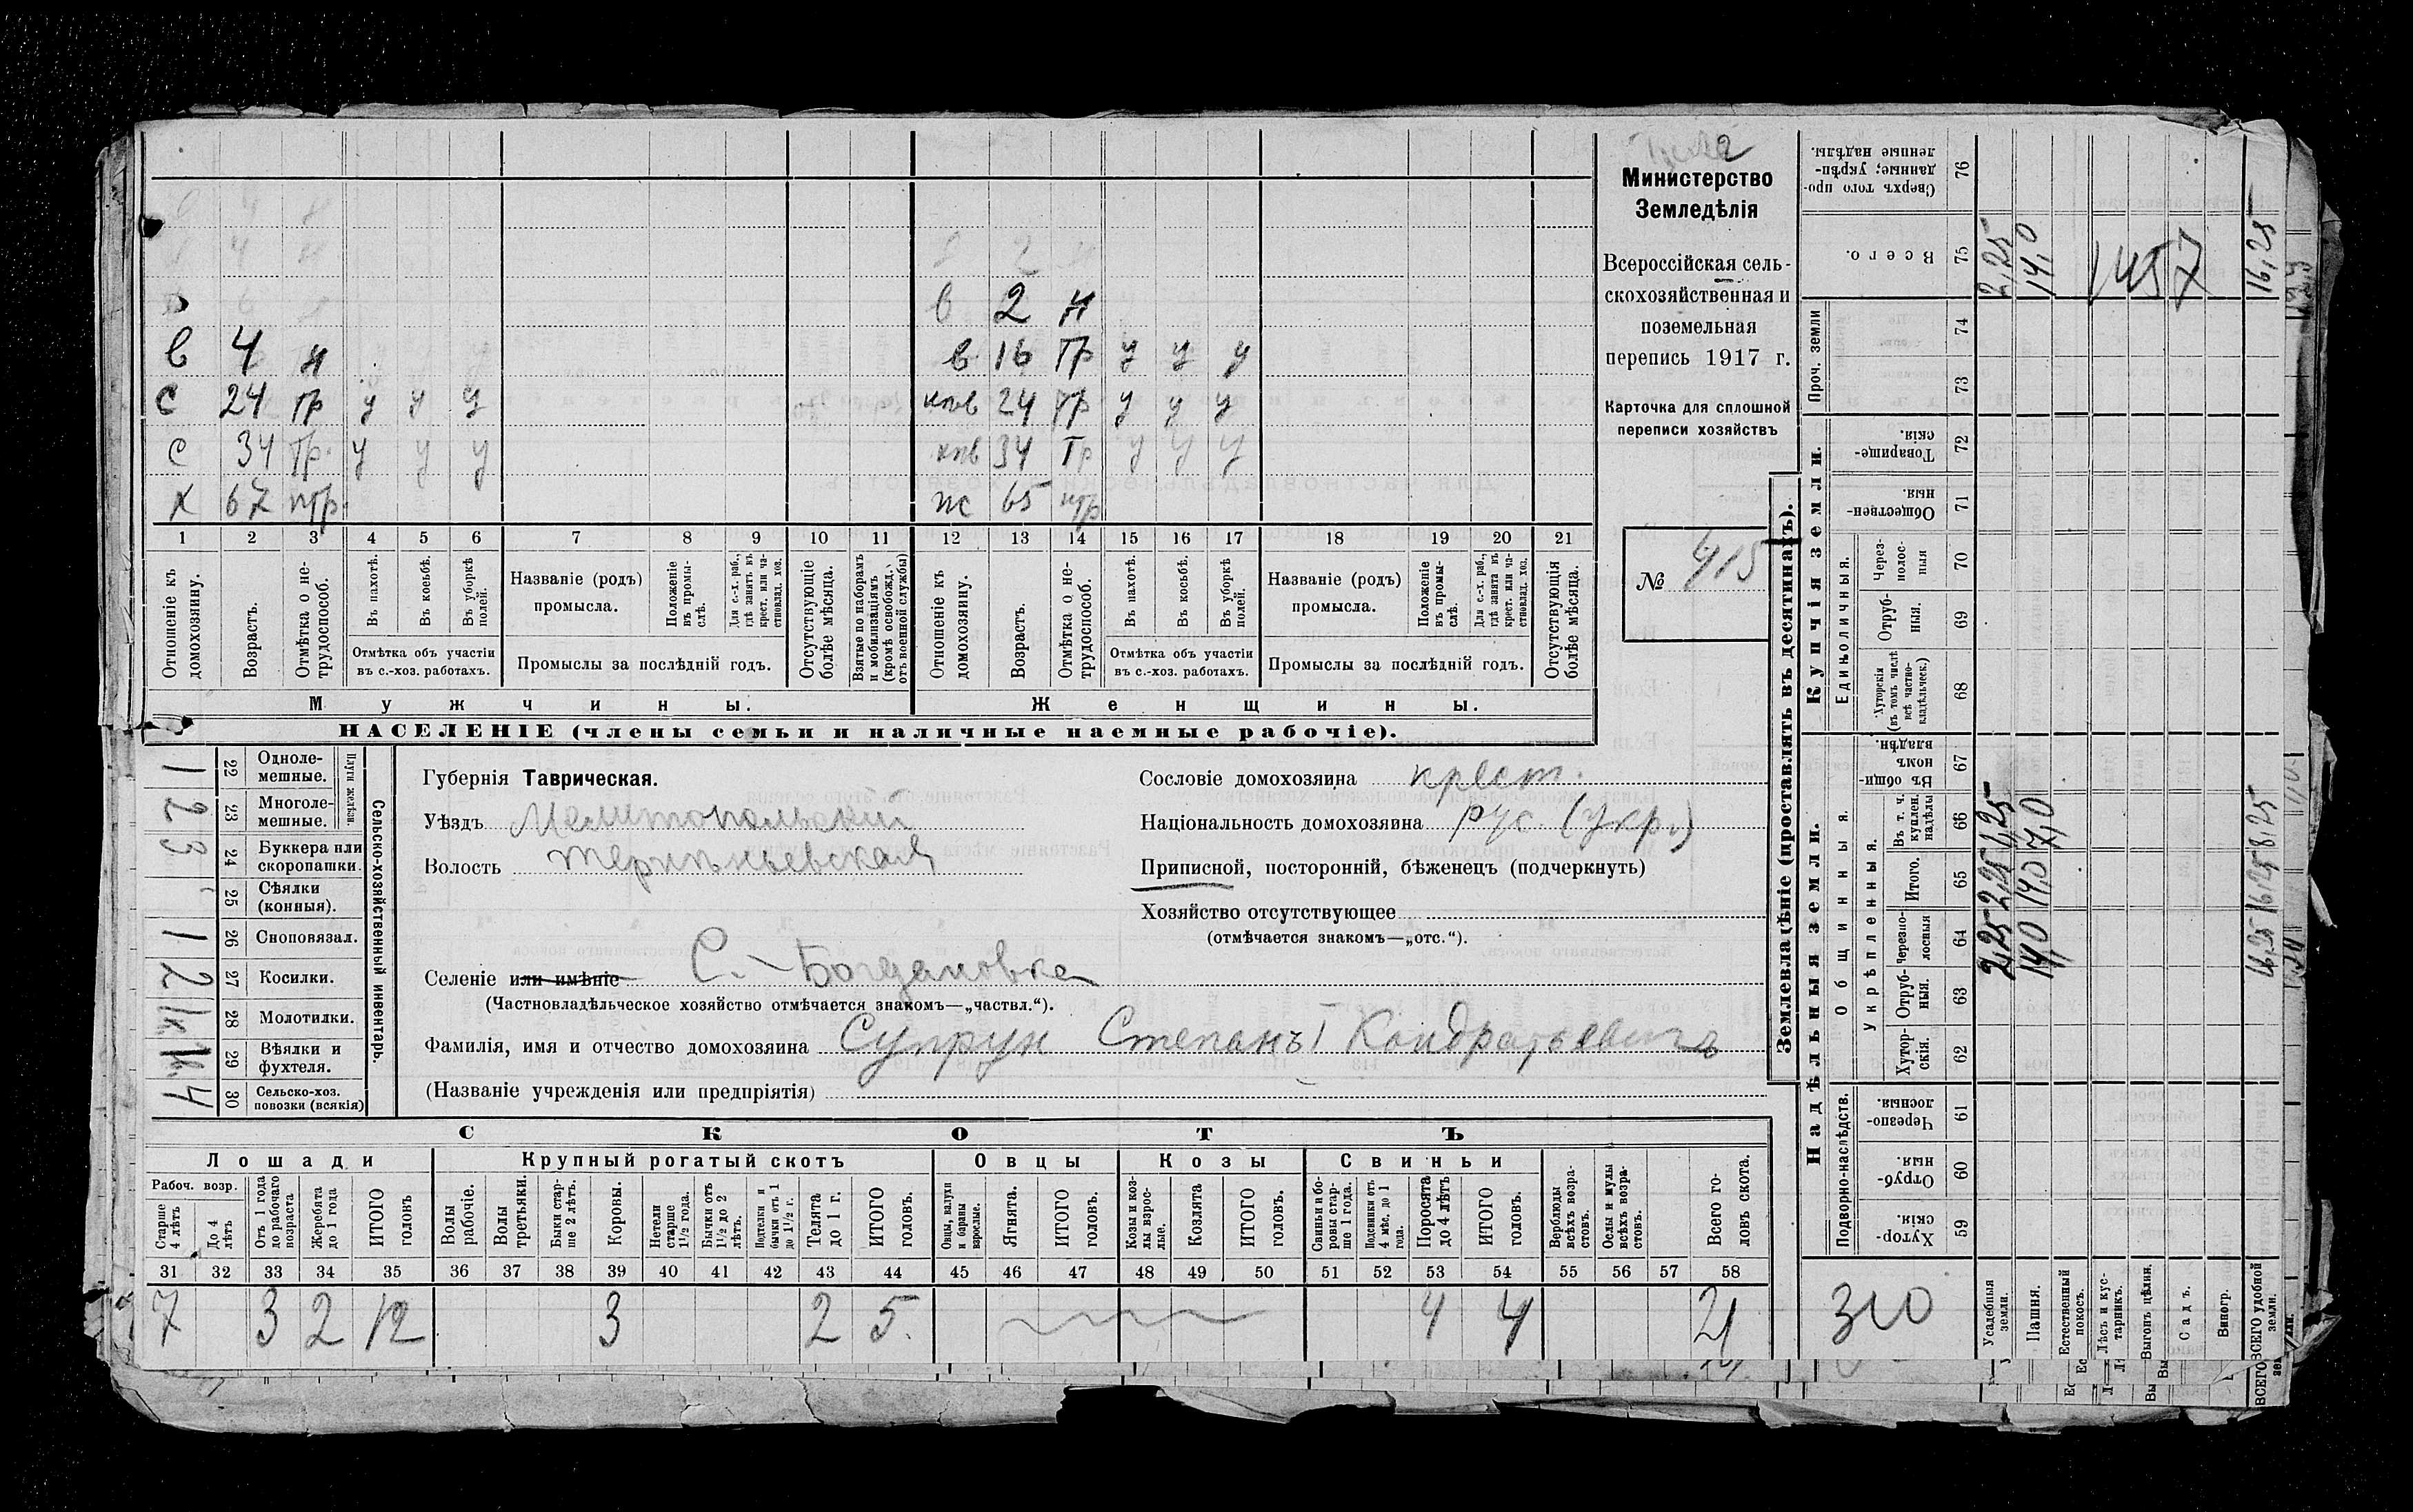 2
Министерство
Земледѣлія
Всероссійская сель-
скохозяйственная и
поземельная
перепись 1917 г.
Карточка для сплошной
переписи хозяйствъ
№ 415
в 2 н
в 4 н
в 16 тр у у у
с 24 тр у у у
кпв 24 тр у у у
с 34 тр. у у у
кпв 34 тр у у у
х 67 птр.
ж 65 нтр
1 2 3 4 5 6 7 8 9 10 11 12 13 14 15 16 17 18 19 20 21
Отношеніе къ домохозяину.
Возрастъ.
Отмѣтка о не-трудоспособ.
Въ пахотѣ.
Въ косьбѣ.
Въ уборкѣ полей.
Отмѣтка объ участіи
въ с.-хоз. работахъ.
Названіе (родъ)
промысла.
Положеніе въ промы-слѣ.
Для с.-х. раб., гдѣ занятъ въ крест. или ча-стновлад. хоз.
Промыслы за послѣдній годъ.
Отсутствующіе болѣе мѣсяца.
Взятые по наборамъ и мобилизаціямъ (кромѣ освобожд. отъ военной службы)
Отношеніе къ домохозяину.
Возрастъ.
Отмѣтка о не-трудоспособ.
Въ пахотѣ.
Въ косьбѣ.
Въ уборкѣ полей.
Отмѣтка объ участіи
въ с.-хоз. работахъ.
Названіе (родъ)
промысла.
Положеніе въ промы-слѣ.
Для с.-х. раб., гдѣ занята въ крест. или ча-стновлад. хоз.
Промыслы за послѣдній годъ.
Отсутствующія болѣе мѣсяца.
Мужчины.
Женщины.
НАСЕЛЕНІЕ (члены семьи и наличные наемные рабочіе).
Сельско-хозяйственный инвентарь.
Плуги желѣзн.
1 22 Одноле-мешные.
2 23 Многоле-мешные.
3 24 Буккера или скоропашки.
25 Сѣялки (конныя).
1 26 Сноповязал.
2 27 Косилки.
1к 28 Молотилки.
29 Вѣялки и фухтеля.
4 30 Сельско-хоз. повозки (всякія)
Губернія Таврическая.
Уѣздъ Мелитопольскій
Волость Терпѣньевская
Селеніе или имѣніе С. Богдановка
(Частновладѣльческое хозяйство отмѣчается знакомъ—„частвл.“).
Фамилія, имя и отчество домохозяина Супрун Степанъ I Кондратьевичъ
(Названіе учрежденія или предпріятія)
Сословіе домохозяина крест.
Національность домохозяина рус. (укр.)
Приписной, посторонній, бѣженецъ (подчеркнуть)
Хозяйство отсутствующее
(отмѣчается знакомъ—„отс.“).
СКОТЪ
Лошади
Крупный рогатый скотъ
Овцы
Козы
Свиньи
Рабоч. возр.
Старше 4 лѣтъ
До 4 лѣтъ
Отъ 1 года до рабочаго возраста
Жеребята до 1 года
ИТОГО головъ
Волы рабочіе.
Волы третьяки.
Быки стар-ше 2 лѣтъ.
Коровы.
Нетели старше 1½ года.
Бычки отъ 1½ до 2 лѣтъ.
Подтелки и бычки отъ 1 до 1½ г.
Телята до 1 г.
ИТОГО головъ.
Овцы, валухи и бараны взрослые.
Ягнята.
ИТОГО головъ.
Козы и коз-лы взрос-лые.
Козлята
ИТОГО головъ.
Свиньи и бо-ровы стар-ше 1 года.
Подсвинки отъ 4 мѣс. до 1 года.
Поросята до 4 лѣтъ
ИТОГО головъ.
Верблюды всѣхъ возра-стовъ.
Ослы и мулы всѣхъ возра-стовъ.
Всего го-ловъ скота.
31 32 33 34 35 36 37 38 39 40 41 42 43 44 45 46 47 48 49 50 51 52 53 54 55 56 57 58
7 3 2 12 3 2 5. 4 4 21
Землевладѣніе (проставлять въ десятинахъ).
Надѣльныя земли.
Купчія земли.
Проч. земли
Подворно-наслѣдств.
Общинныя.
Укрѣпленныя.
Единоличныя.
59 Хутор-скія
60 Отруб-ныя.
61 Черезпо-лосныя.
62 Хутор-скія.
63 Отруб-ныя.
64 Черезпо-лосныя
65 Итого.
66 Въ т. ч. куплен. надѣлы
67 Въ общин-номъ владѣн.
68 Хуторскія (въ томъ числѣ всѣ частно-владѣльческ.)
69 Отруб-ныя.
70 Через-полос-ныя
71 Обществен-ныя
72 Товарище-скія.
73
74
75 Всего.
76 Сверхъ того про-данные; укрѣп-ленные надѣлы.
Усадебныя земли. 2,25 2,25 1,25 2,25
Пашня. 14,0 14,0 7,0 14,0
Естественный покосъ.
Лѣсъ и кус-тарникъ.
Выгонъ цѣлин.
Садъ.
Виногр.
ВСЕГО удобной земли. 16,25 16,25 8,25 16,25
1457
310